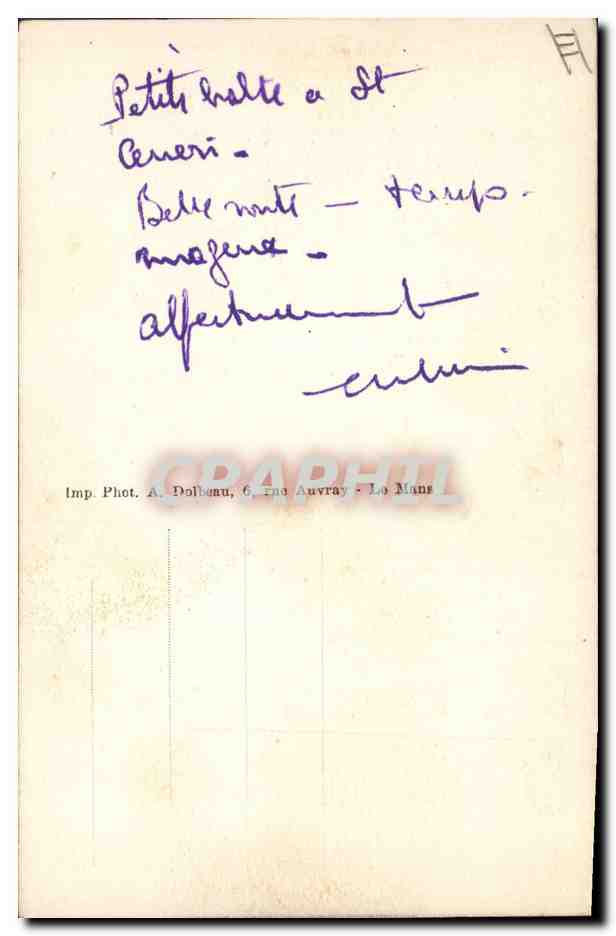 Petite halte a St
Ceneri -
Belle route - temps -
affectueusement
CPAPHIL
Imp. Phot. A. Dolbeau, 6, rue Auvray - Le Mans